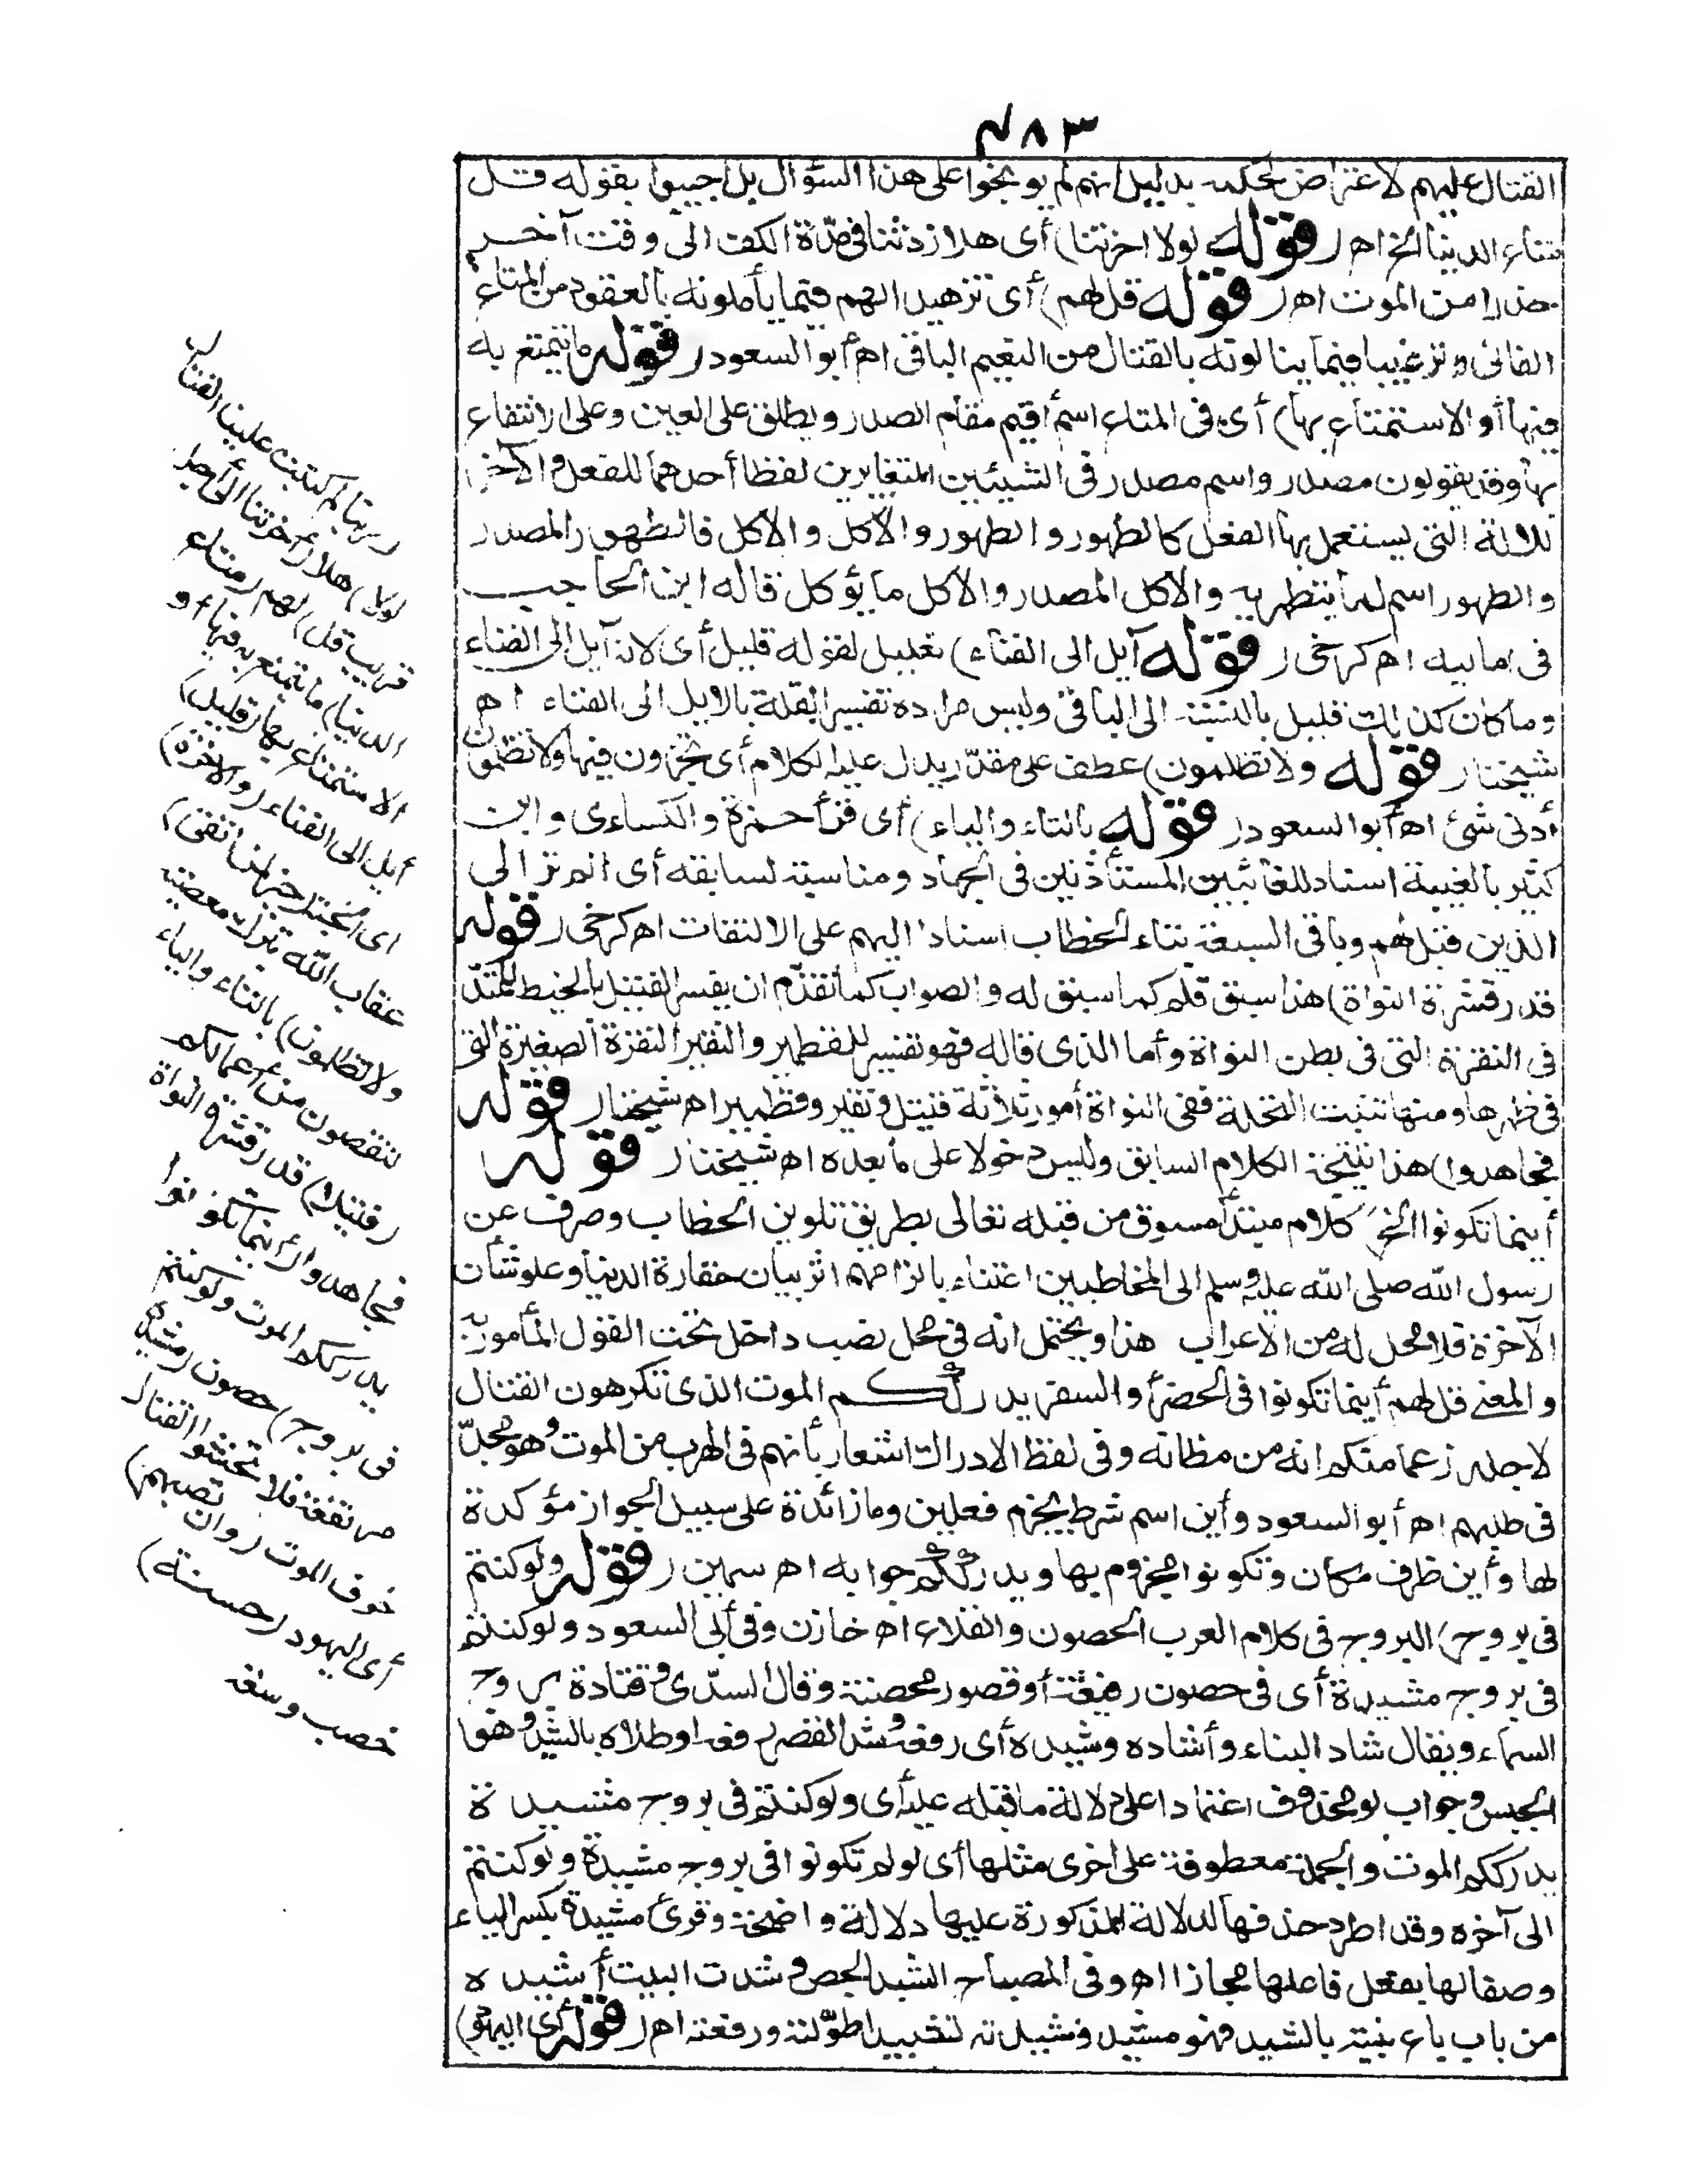 ٤٨٣
القتال عليهم لا اعتراض لحكمه بدليل انهم لم يوبخوا على هذا السؤال بل أجيبوا بقوله قل
متاع الدنيا الخ اهر (قوله لولا اخرتنا) أى هلا زدتنا فى مدّة الكف الى وقت آخر
حذرا من الموت اهر (قوله قل لهم) أى تزهيدا لهم فيما يأملونه بالعقود من المتاع
الفانى وترغيبا فيما ينالونه بالقتال من النعيم الباقى اه أبو السعود (قوله ما يتمتع به
فيها أو الاستمتاع بها) أى فى المتاع اسم أقيم مقام المصدر ويطلق على العين وعلى الانتفاع
بها وقد يقولون مصدر واسم مصدر فى الشيئين المتغايرين لفظا أحدهما للفعل والآخر
للالة التى يستعمل بها الفعل كالطهور والطهور والأكل والاكل فالطهور المصدر
والطهور اسم لما يتطهر به والاكل المصدر والاكل ما يؤكل قاله ابن الحاجب
فى اماليه اه كرخى (قوله آيل الى الفناء) تعليل لقوله قليل أى لانه آيل الى الفناء
وما كان كذلك قليل بالنسبة الى الباقى وليس مراده تفسير القلة بالايل الى الفناء اه
شيخنا (قوله ولا تظلمون) عطف على مقدّر يدل عليه الكلام أى تجزون فيها ولا تظلمون
أدنى شئ اه أبو السعود (قوله بالتاء والياء) أى قرأ حمزة والكساءى وابن
كثير بالغيبة اسناد للغائبين المستأذنين فى الجهاد ومناسبة لسابقه أى الم تر الى
الذين قيل لهم وباقى السبعة بتاء الخطاب اسنادا اليهم على الالتفات اه كرخى (قوله
قدر قشرة النواة) هذا سبق قلم كما سبق له والصواب كما تقدّم ان يفسر الفتيل بالخيط الممتدّ
فى النقرة التى فى بطن النواة وأما الذى قاله فهو تفسير للقطمير والنقير النقرة الصغيرة التى
فى ظهرها ومنها تنبت النخلة ففى النواة أمور ثلاثة فتيل ونقير وقطمير اه شيخنا (قوله
فجاهدوا) هذا نتيجة الكلام السابق وليس دخولا على ما بعده اه شيخنا (قوله
أينما تكونوا الخ) كلام مبتدأ مسوق من قبله تعالى بطريق تلوين الخطاب وصرفه عن
رسول الله صلى الله عليه وسلم الى المخاطبين اعتناء بالزامهم اثر بيان حقارة الدنيا وعلو شأن
الآخرة فلا محل له من الاعراب هذا ويحتمل انه فى محل نصب داخل تحت القول المأمور به
والمعنى قل لهم أينما تكونوا فى الحضر أو السفر يدرككم الموت الذى تكرهون القتال
لاجله زعما منكم انه من مظانه وفى لفظ الادراك اشعار بأنهم فى الهرب من الموت وهو مجدّ
فى طلبهم اه أبو السعود وأين اسم شرط يجزم فعلين وما زائدة على سبيل الجواز مؤكدة
لها وأين ظرف مكان وتكونوا مجزوم بها ويدرككم جوابه اه سمين (قوله ولو كنتم
فى بروج) البروج فى كلام العرب الحصون والقلاع اه خازن وفى أبى السعود ولو كنتم
فى بروج مشيدة أى فى حصون رفيعة أو قصور محصنة وقال السدّى وقتادة بروج
السماء ويقال شاد البناء وأشاده وشيده أى رفعه وشد القصر رفعه أو طلاه بالشيد وهو
الجبس وجواب لو محذوف اعتمادا على دلالة ما قبله عليه أى ولو كنتم فى بروج مشيدة
يدرككم الموت والجملة معطوفة على اخرى مثلها أى لو لم تكونوا فى بروج مشيدة ولو كنتم
الى آخره وقد اطرد حذفها لدلالة المذكورة عليها دلالة واضحة وقرئ مشيدة بكسر الياء
وصفا لها بفعل فاعلها مجازا اه وفى المصباح الشيد الجص وشدت البيت أشيده
من باب باع بنيته بالشيد فهو مشيد وشيدته تشييدا طوّلته ورفعته اهر (قوله أى اليهود)
(ربنا لم كتبت علينا القتال
لولا) هلا (أخرتنا الى أجل
قريب قل) لهم (متاع
الدنيا) ما يتمتع به فيها أو
الاستمتاع بها (قليل)
آيل الى الفناء (والاخرة)
اى الجنة (خير لمن اتقى)
عقاب الله بترك معصيته
ولا تظلمون) بالتاء والياء
تنقصون من أعمالكم
(فتيلا) قدر قشرة النواة
فجاهدوا (أينما تكونوا
يدرككم الموت ولو كنتم
فى بروج) حصون (مشيدة)
مرتفعة فلا تخشوا القتال
خوف الموت (وان تصبهم)
أى اليهود (حسنة)
خصب وسعة